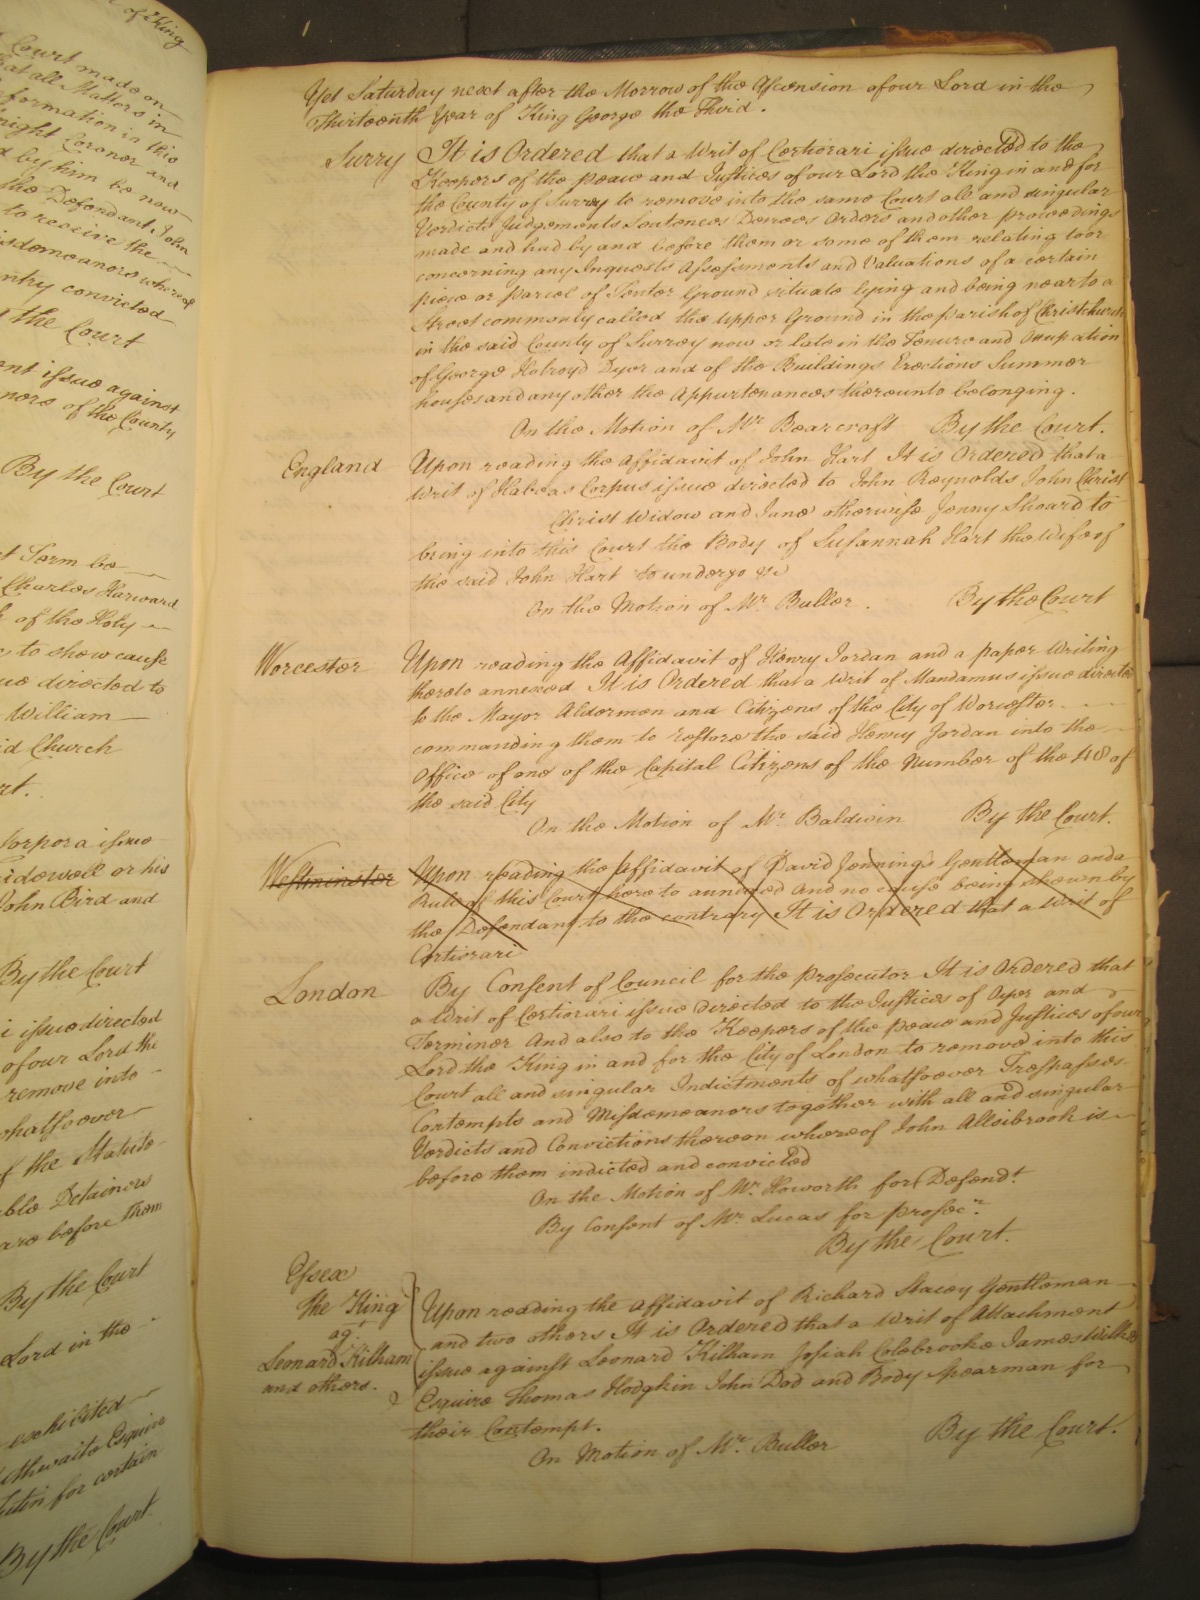 of King
Court made on
that all Matters in
formation in this
night Coroner and
d by him be now
the Defendant John
to receive the
isdemeanors whereof
ntry convicted
the Court
ent issue against
nors of the County
By the Court
t Term be
Charles Harward
of the Holy
to show cause
directed to
William
id Church
rt.
Corpora issue
idewell or his
John Bird and
By the Court
i issue directed
of our Lord the
remove into
whatsoever
f the Statute
ble Detainers
are before them
By the Court
Lord in the
exhibited
thwaite Esquire
for certain
By the Court
Yet Saturday next after the Morrow of the Ascension of our Lord in the
Thirteenth Year of King George the Third.
Surry It is Ordered that a Writ of Certiorari issue directed to the
Keepers of the peace and Justices of our Lord the King in and for
the County of Surry to remove into the same Court all and singular
Verdicts Judgements Sentences Decrees Orders and other proceedings
made and had by and before them or some of them relating to or
concerning any Inquests Assessments and Valuations of a certain
piece or parcel of Tenter Ground situate lying and being near to a
Street commonly called the upper Ground in the parish of Christchurch
in the said County of Surrey now or late in the Tenure and Occupation
of George Holroyd Dyer and of the Buildings Erections Summer
houses and any other the Appurtenances thereunto belonging.
On the Motion of Mr. Bearcroft By the Court.
England Upon reading the Affidavit of John Hart It is Ordered that a
Writ of Habeas Corpus issue directed to John Reynolds John Christ
Christ Widow and Jane otherwise Jenny Sheard to
bring into this Court the Body of Susannah Hart the Wife of
the said John Hart to undergo &c
On the Motion of Mr. Buller. By the Court
Worcester Upon reading the Affidavit of Henry Jordan and a paper Writing
thereto annexed It is Ordered that a Writ of Mandamus issue directed
to the Mayor Aldermen and Citizens of the City of Worcester
commanding them to restore the said Henry Jordan into the
Office of one of the Capital Citizens of the Number of the 48 of
the said City
On the Motion of Mr. Baldwin By the Court.
Westminster Upon reading the Affidavit of David Jennings Gentleman and a
Rule of this Court hereto annexed And no cause being shewn by
the Defendant to the contrary It is Ordered that a Writ of
Certiorari
London By Consent of Council for the prosecutor It is Ordered that
a Writ of Certiorari issue directed to the Justices of Oyer and
Terminer And also to the Keepers of the peace and Justices of our
Lord the King in and for the City of London to remove into this
Court all and singular Indictments of whatsoever Trespasses
Contempts and Misdemeanors together with all and singular
Verdicts and Convictions thereon whereof John Allsibrook is
before them indicted and convicted
On the Motion of Mr. Howorth for Defendt.
By Consent of Mr. Lucas for prosecr.
By the Court.
Essex
The King
agt.
Leonard Kilham
and others.
Upon reading the Affidavit of Richard Stacey Gentleman
and two others It is Ordered that a Writ of Attachment
issue against Leonard Kilham Josiah Colebrooke James Wilkes
Esquire Thomas Hodgkin John Dod and Body Spearman for
their Contempt.
On Motion of Mr. Buller By the Court.